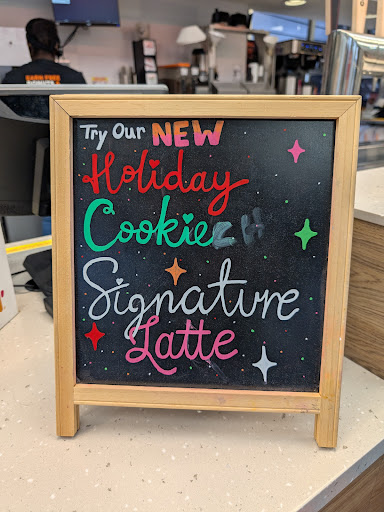 Try Our NEW
Holiday
Cookie
Signature
Latte